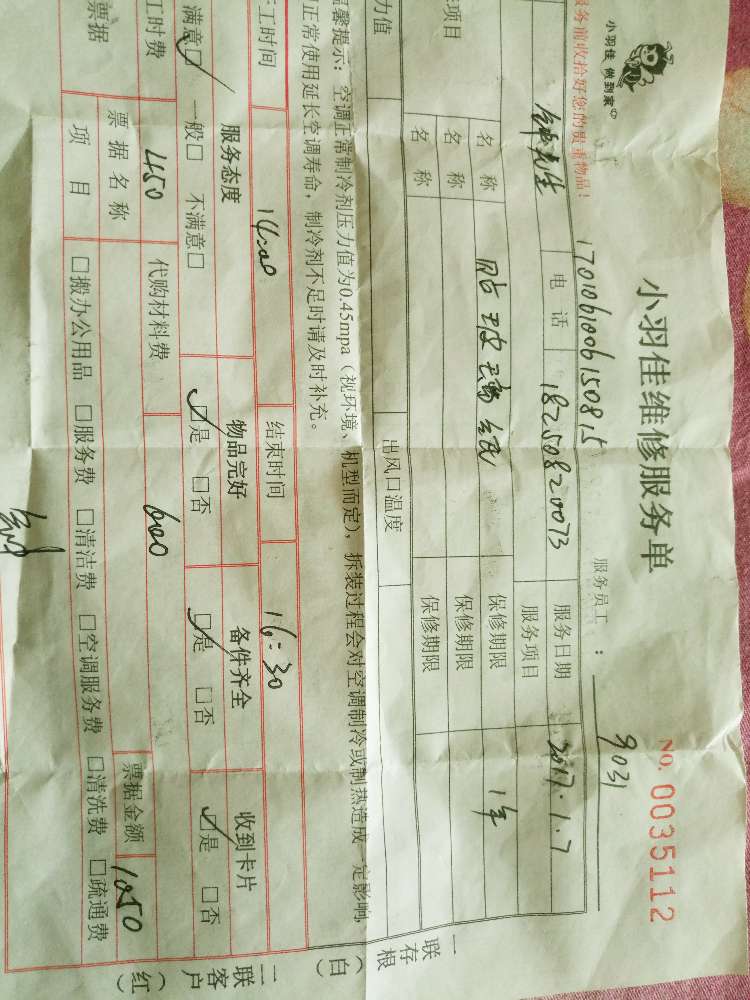 小羽佳 做到家
小羽佳维修服务单
No. 0035112
务前收拾好您的贵重物品!
1701061006150815
服务员工:
9031
钟先生
电话
18250820073
服务日期
2017.1.7
项目
服务项目
名称
贴玻璃纸
保修期限
1年
名称
保修期限
名称
保修期限
力值
出风口温度
馨提示:空调正常制冷剂压力值为0.45mpa(视环境、机型而定),拆装过程会对空调制冷或制热造成一定影响,
正常使用延长空调寿命,制冷剂不足时请及时补充。
工时间
14:00
结束时间
16:30
服务态度
物品完好
备件齐全
收到卡片
满意☑ 一般□ 不满意□
☑是 □否
☑是 □否
☑是 □否
工时费
450
代购材料费
600
票据
票据名称
票据金额
1050
项目
□搬办公用品 □服务费 □清洁费 □空调服务费 □清洗费 □疏通费
一联存根(白)
二联客户(红)